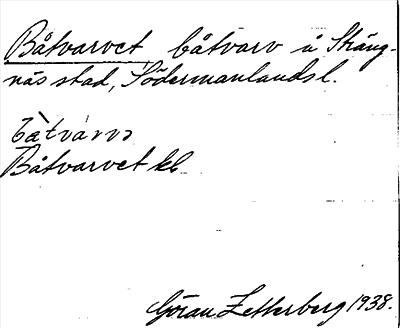 Båtvarvet båtvarv i Sträng-
näs stad, Södermanlands l.
Båtvarvet kl
Göran Zetterberg 1938.